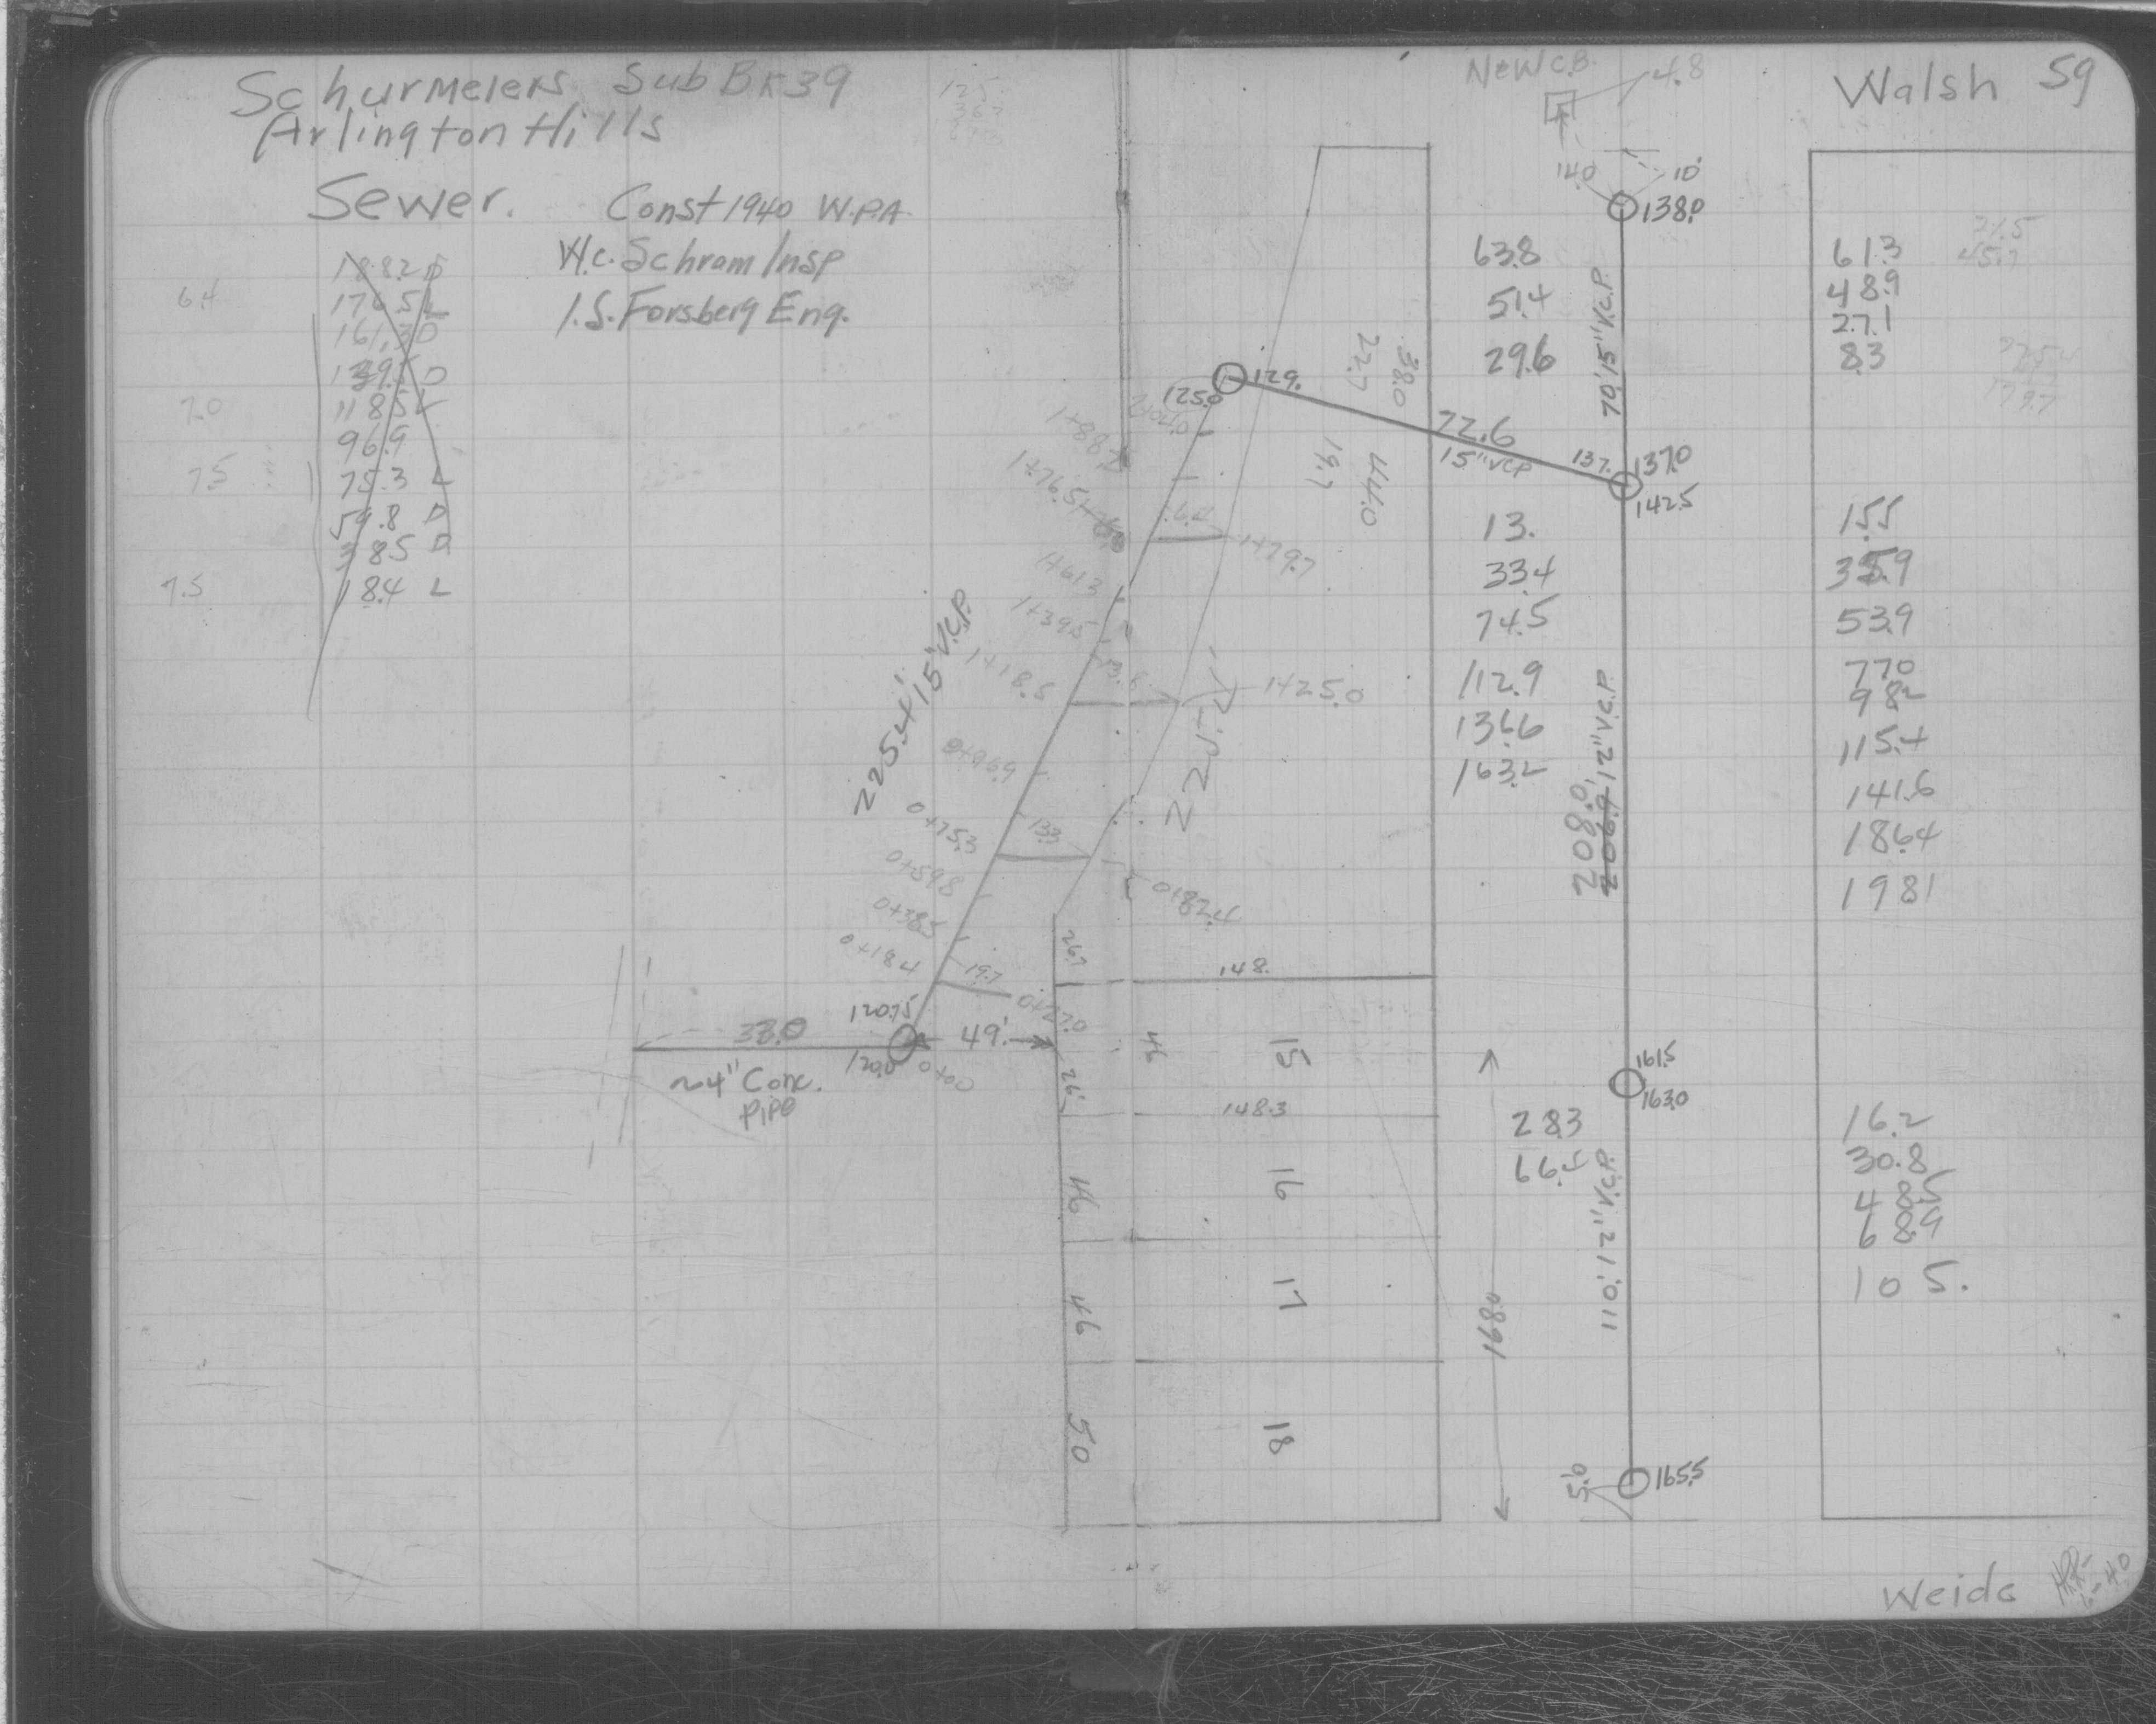 Schurmeiers Sub Bk 39
Arlington Hills
Sewer.
Const 1940 W.P.A.
W.C. Schram Insp
I.S. Forsberg Eng.
Walsh 59
New C.B.
4.8
6.4
7.0
7.5
7.5
188.2 D
176.5 L
161.3 D
139.5 D
118.5 L
96.9
75.3 L
59.8 D
38.5 D
18.4 L
14.0
10'
138.0
63.8
51.4
29.6
70' 15" V.C.P.
61.3
48.9
27.1
8.3
22.7
38.0
129.
125.0
72.6
15" VCP
137.
137.0
142.5
19.7
44.0
1+88.2
1+76.5
1+61.3
1+39.5
1+18.5
0+96.9
0+75.3
0+59.8
0+38.5
0+18.4
1+79.7
1+25.0
0+82.4
0+27.0
13.3
19.7
225.4' 15" V.C.P.
13.
33.4
74.5
112.9
136.6
163.2
208.0'
206.9 12" V.C.P.
15.5
35.9
53.9
77.0
98.2
115.4
141.6
186.4
198.1
26.7
148.
120.75
120.0
0+00
33.0
49'
24" Conc.
Pipe
26'
46
15
148.3
161.5
163.0
28.3
66.5
16.2
30.8
48.5
68.9
105.
46
16
46
17
50
18
168.0
110' 12" V.C.P.
5.0
165.5
Weide